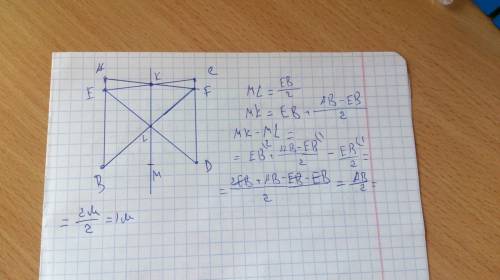 A
C
K
E
F
L
B
D
M
ML = EB/2
MK = EB + (AB-EB)/2
MK - ML =
= EB^(2 + (AB-EB)/2^(1 - EB/2^(1 =
= (2EB + AB - EB - EB)/2 = AB/2 =
= 2м/2 = 1м